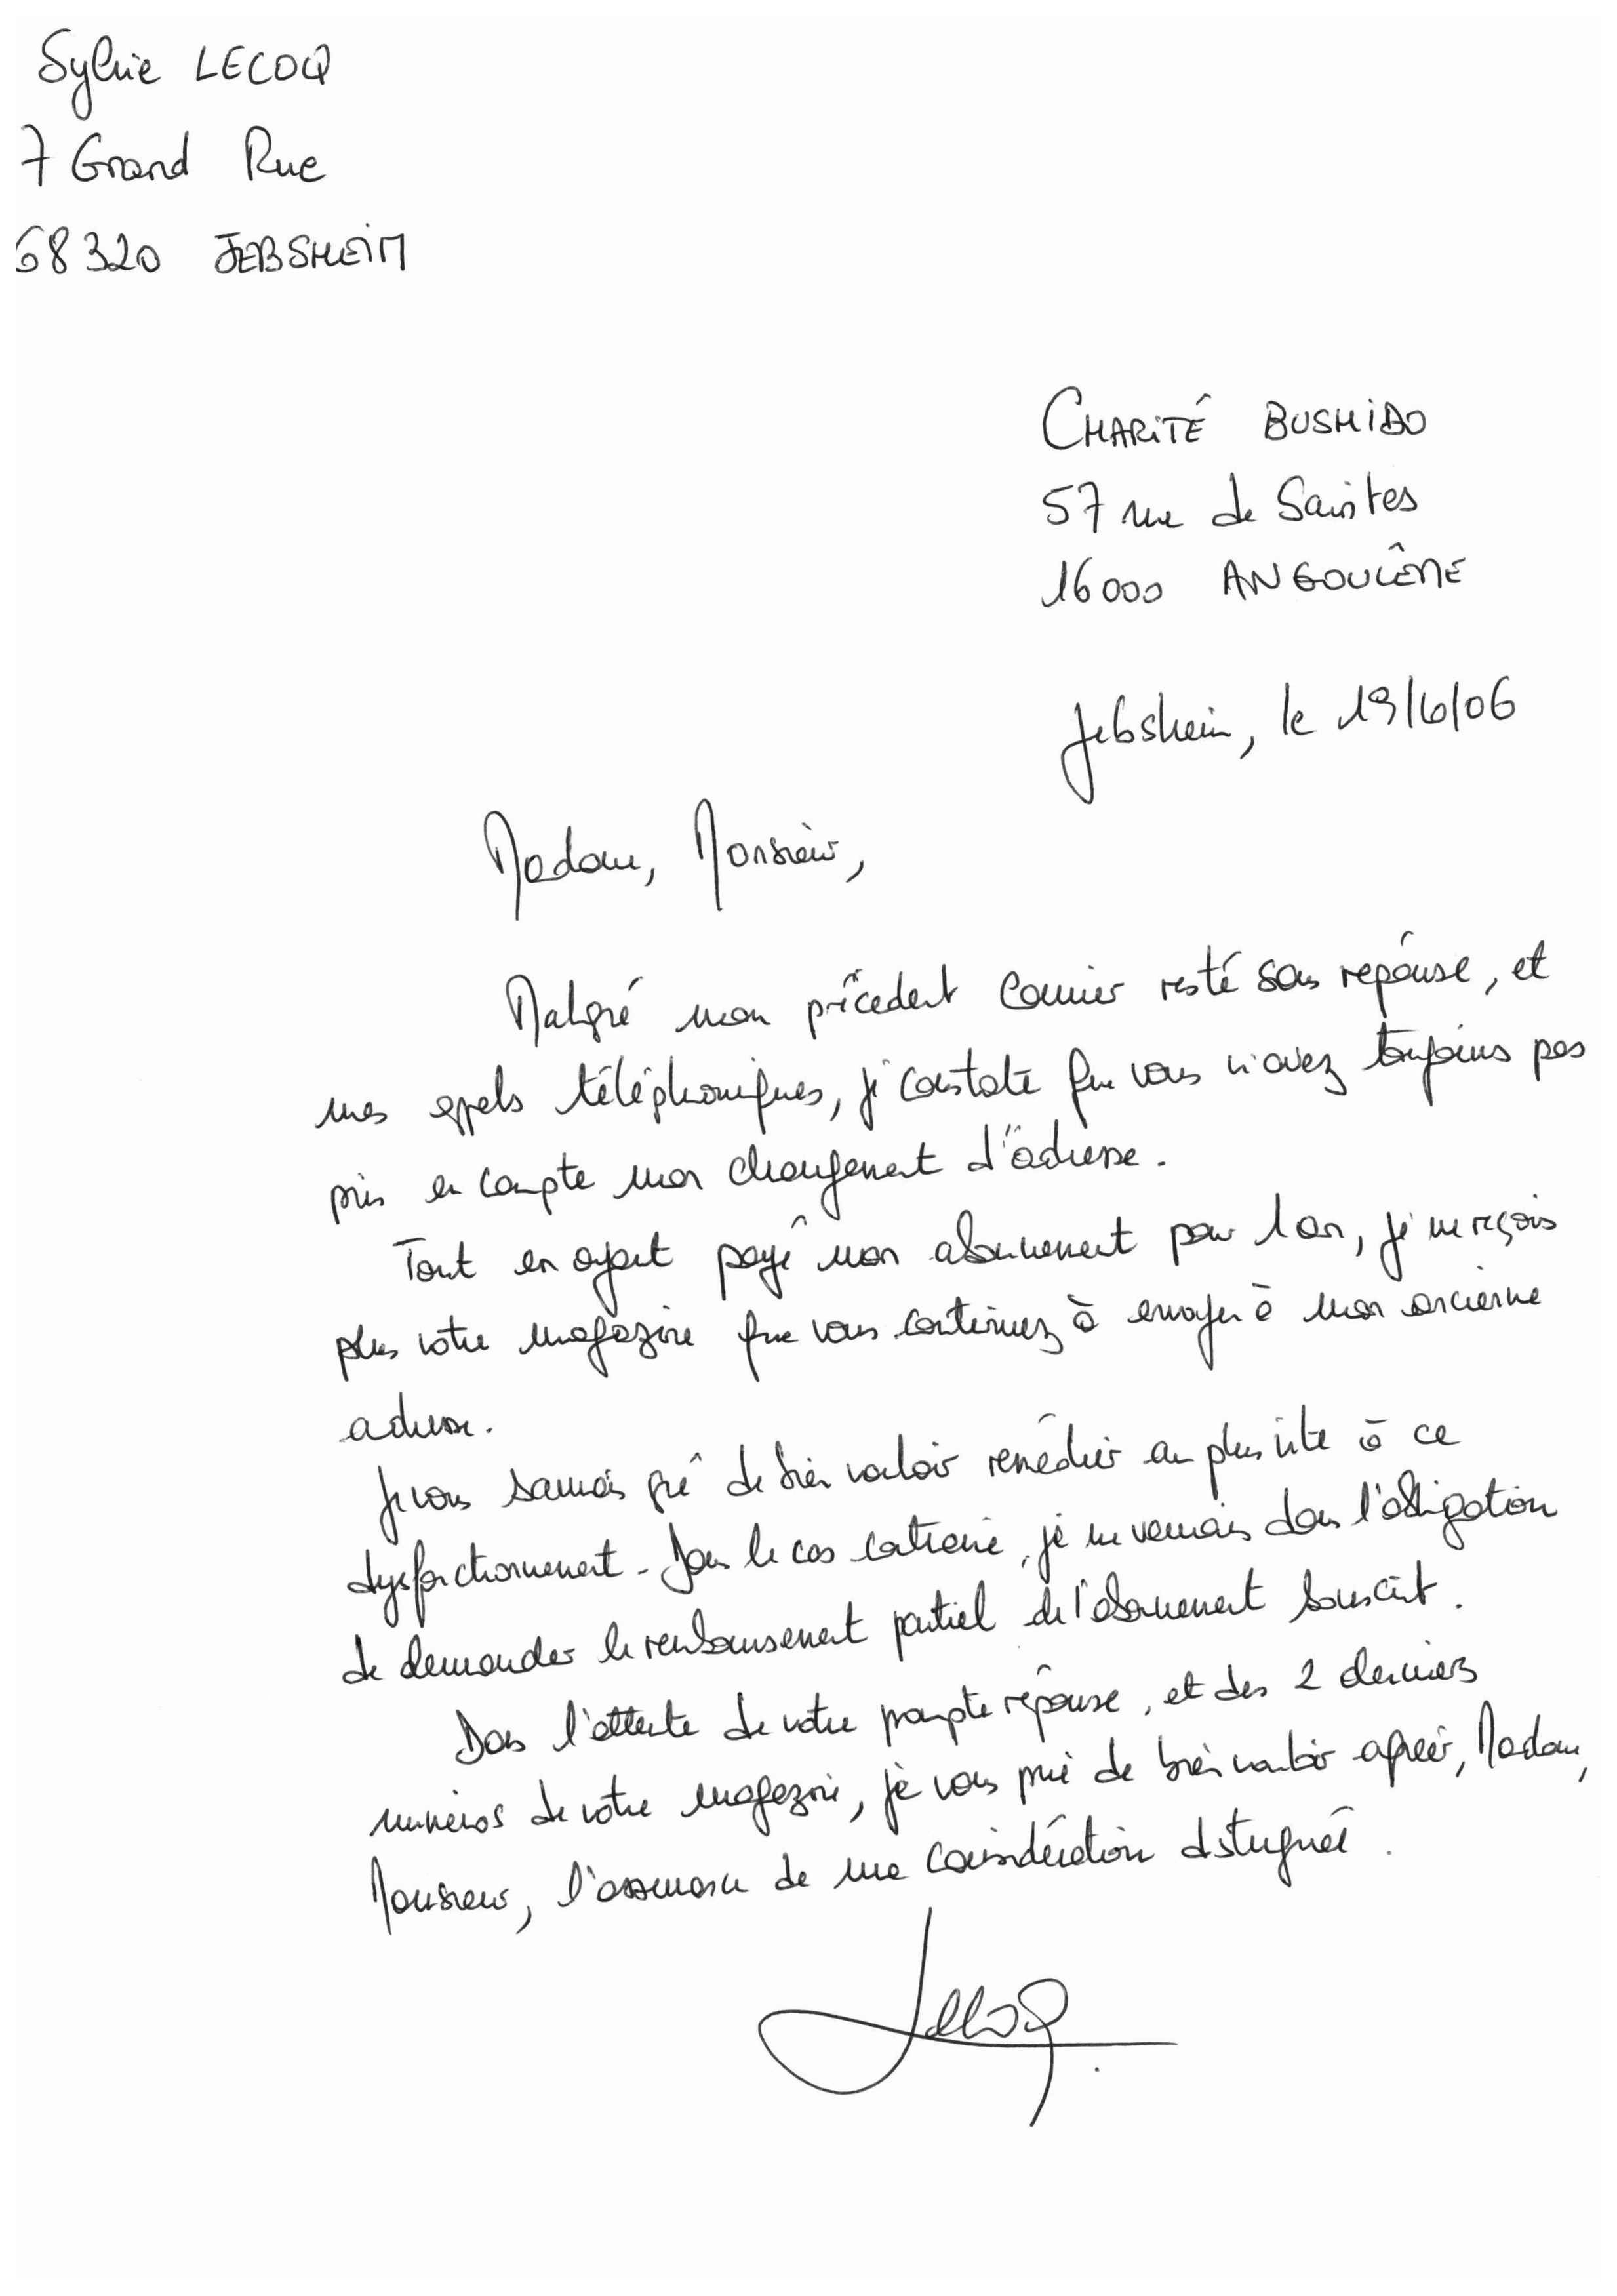 Sylvie LECOQ
7 Grand Rue
68320 JEBSHEIM
CHARITÉ BUSHIDO
57 rue de Saintes
16000 ANGOULÊME
Jebsheim, le 19/6/06
Madame, Monsieur,
Malgré mon précédent courrier resté sans réponse, et
mes appels téléphoniques, je constate que vous n'avez toujours pas
pris en compte mon changement d'adresse.
Tout en ayant payé mon abonnement pour 1 an, je ne reçois
plus votre magazine que vous continuez à envoyer à mon ancienne
adresse.
Je vous saurais gré de bien vouloir remédier au plus vite à ce
dysfonctionnement. Dans le cas contraire, je me verrais dans l'obligation
de demander le remboursement partiel de l'abonnement souscrit.
Dans l'attente de votre prompte réponse, et des 2 derniers
numéros de votre magazine, je vous prie de bien vouloir agréer, Madame,
Monsieur, l'assurance de ma considération distinguée.
Lecoq